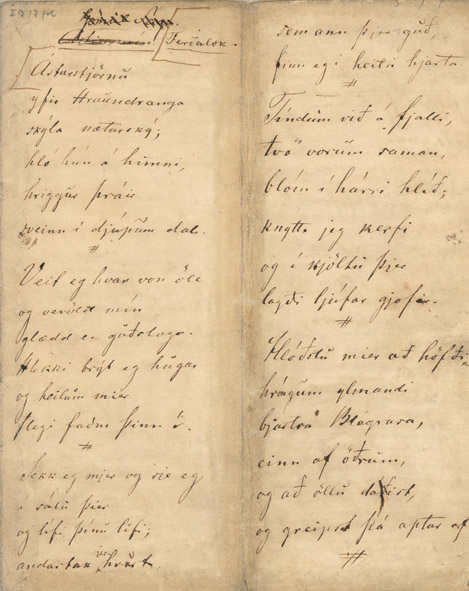 Ferðalok.
Ástarstjörnu
yfir Hraundranga
skýla næturský;
hló hún á himni,
hryggur þráir
sveinn í djúpum dal.
Veit eg hvar von öll
og veröld mín
glædd er guðsloga.
Hlekki brýt eg hugar
og heilum mier
fleygi faðm þinn í.
Sekk eg mjer og sie eg
í sálu þier
og lífi þínu lifi;
andartak hvert
sem ann þjer guð,
finn eg í heitu hjarta
Tíndum við á fjalli,
tvö vorum saman,
blóm í hárri hlíð;
knýtti jeg kerfi
og í kjöltu þjer
lagði ljúfar gjafir.
Hlóðstu mier að höfði
hringum ilmandi
bjartra Blágrasa,
einn af öðrum,
og að öllu dáðist,
og greipst þá aptur af